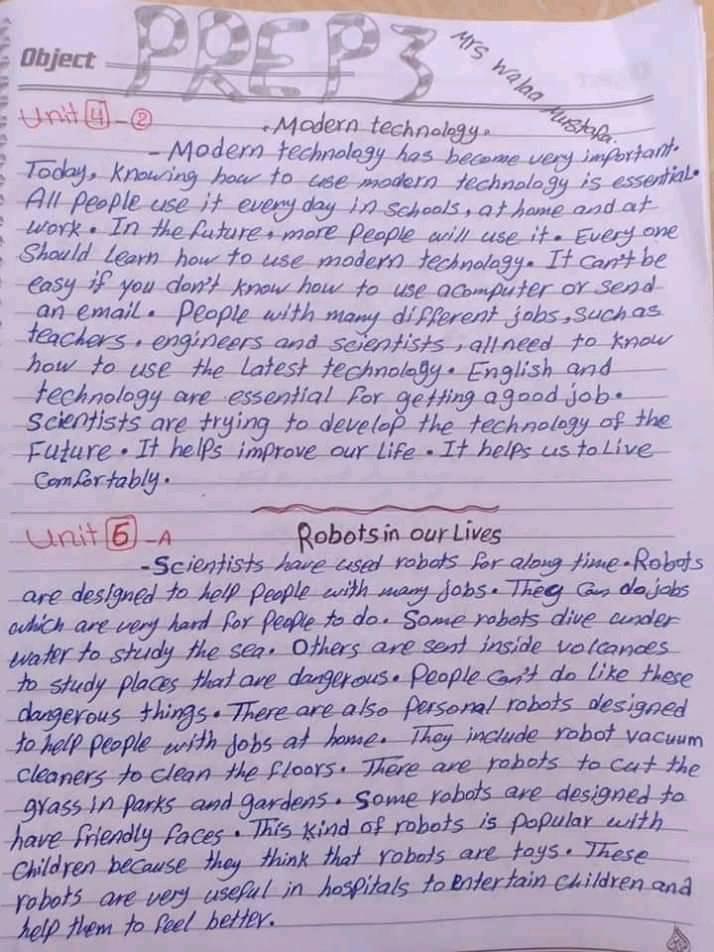 Object
PREP 3
Mrs Walaa Mustafa.
Unit 4 - 2
. Modern technology.
- Modern technology has become very important.
Today, Knowing how to use modern technology is essential.
All people use it every day in schools, at home and at
work. In the future, more people will use it. Every one
Should Learn how to use modern technology. It can't be
easy if you don't know how to use a computer or send
an email. People with many different jobs, such as
teachers, engineers and scientists, all need to know
how to use the Latest technology. English and
technology are essential for getting a good job.
Scientists are trying to develop the technology of the
Future. It helps improve our Life. It helps us to Live
Comfortably.
Unit 5 - A
Robots in our Lives
- Scientists have used robots for along time. Robots
are designed to help people with many jobs. They Can do jobs
which are very hard for people to do. Some robots dive under
water to study the sea. Others are sent inside volcanoes
to study places that are dangerous. People Can't do Like these
dangerous things. There are also personal robots designed
to help people with jobs at home. They include robot vacuum
cleaners to clean the floors. There are robots to cut the
grass in parks and gardens. Some robots are designed to
have friendly faces. This kind of robots is popular with
Children because they think that robots are toys. These
robots are very useful in hospitals to entertain children and
help them to feel better.